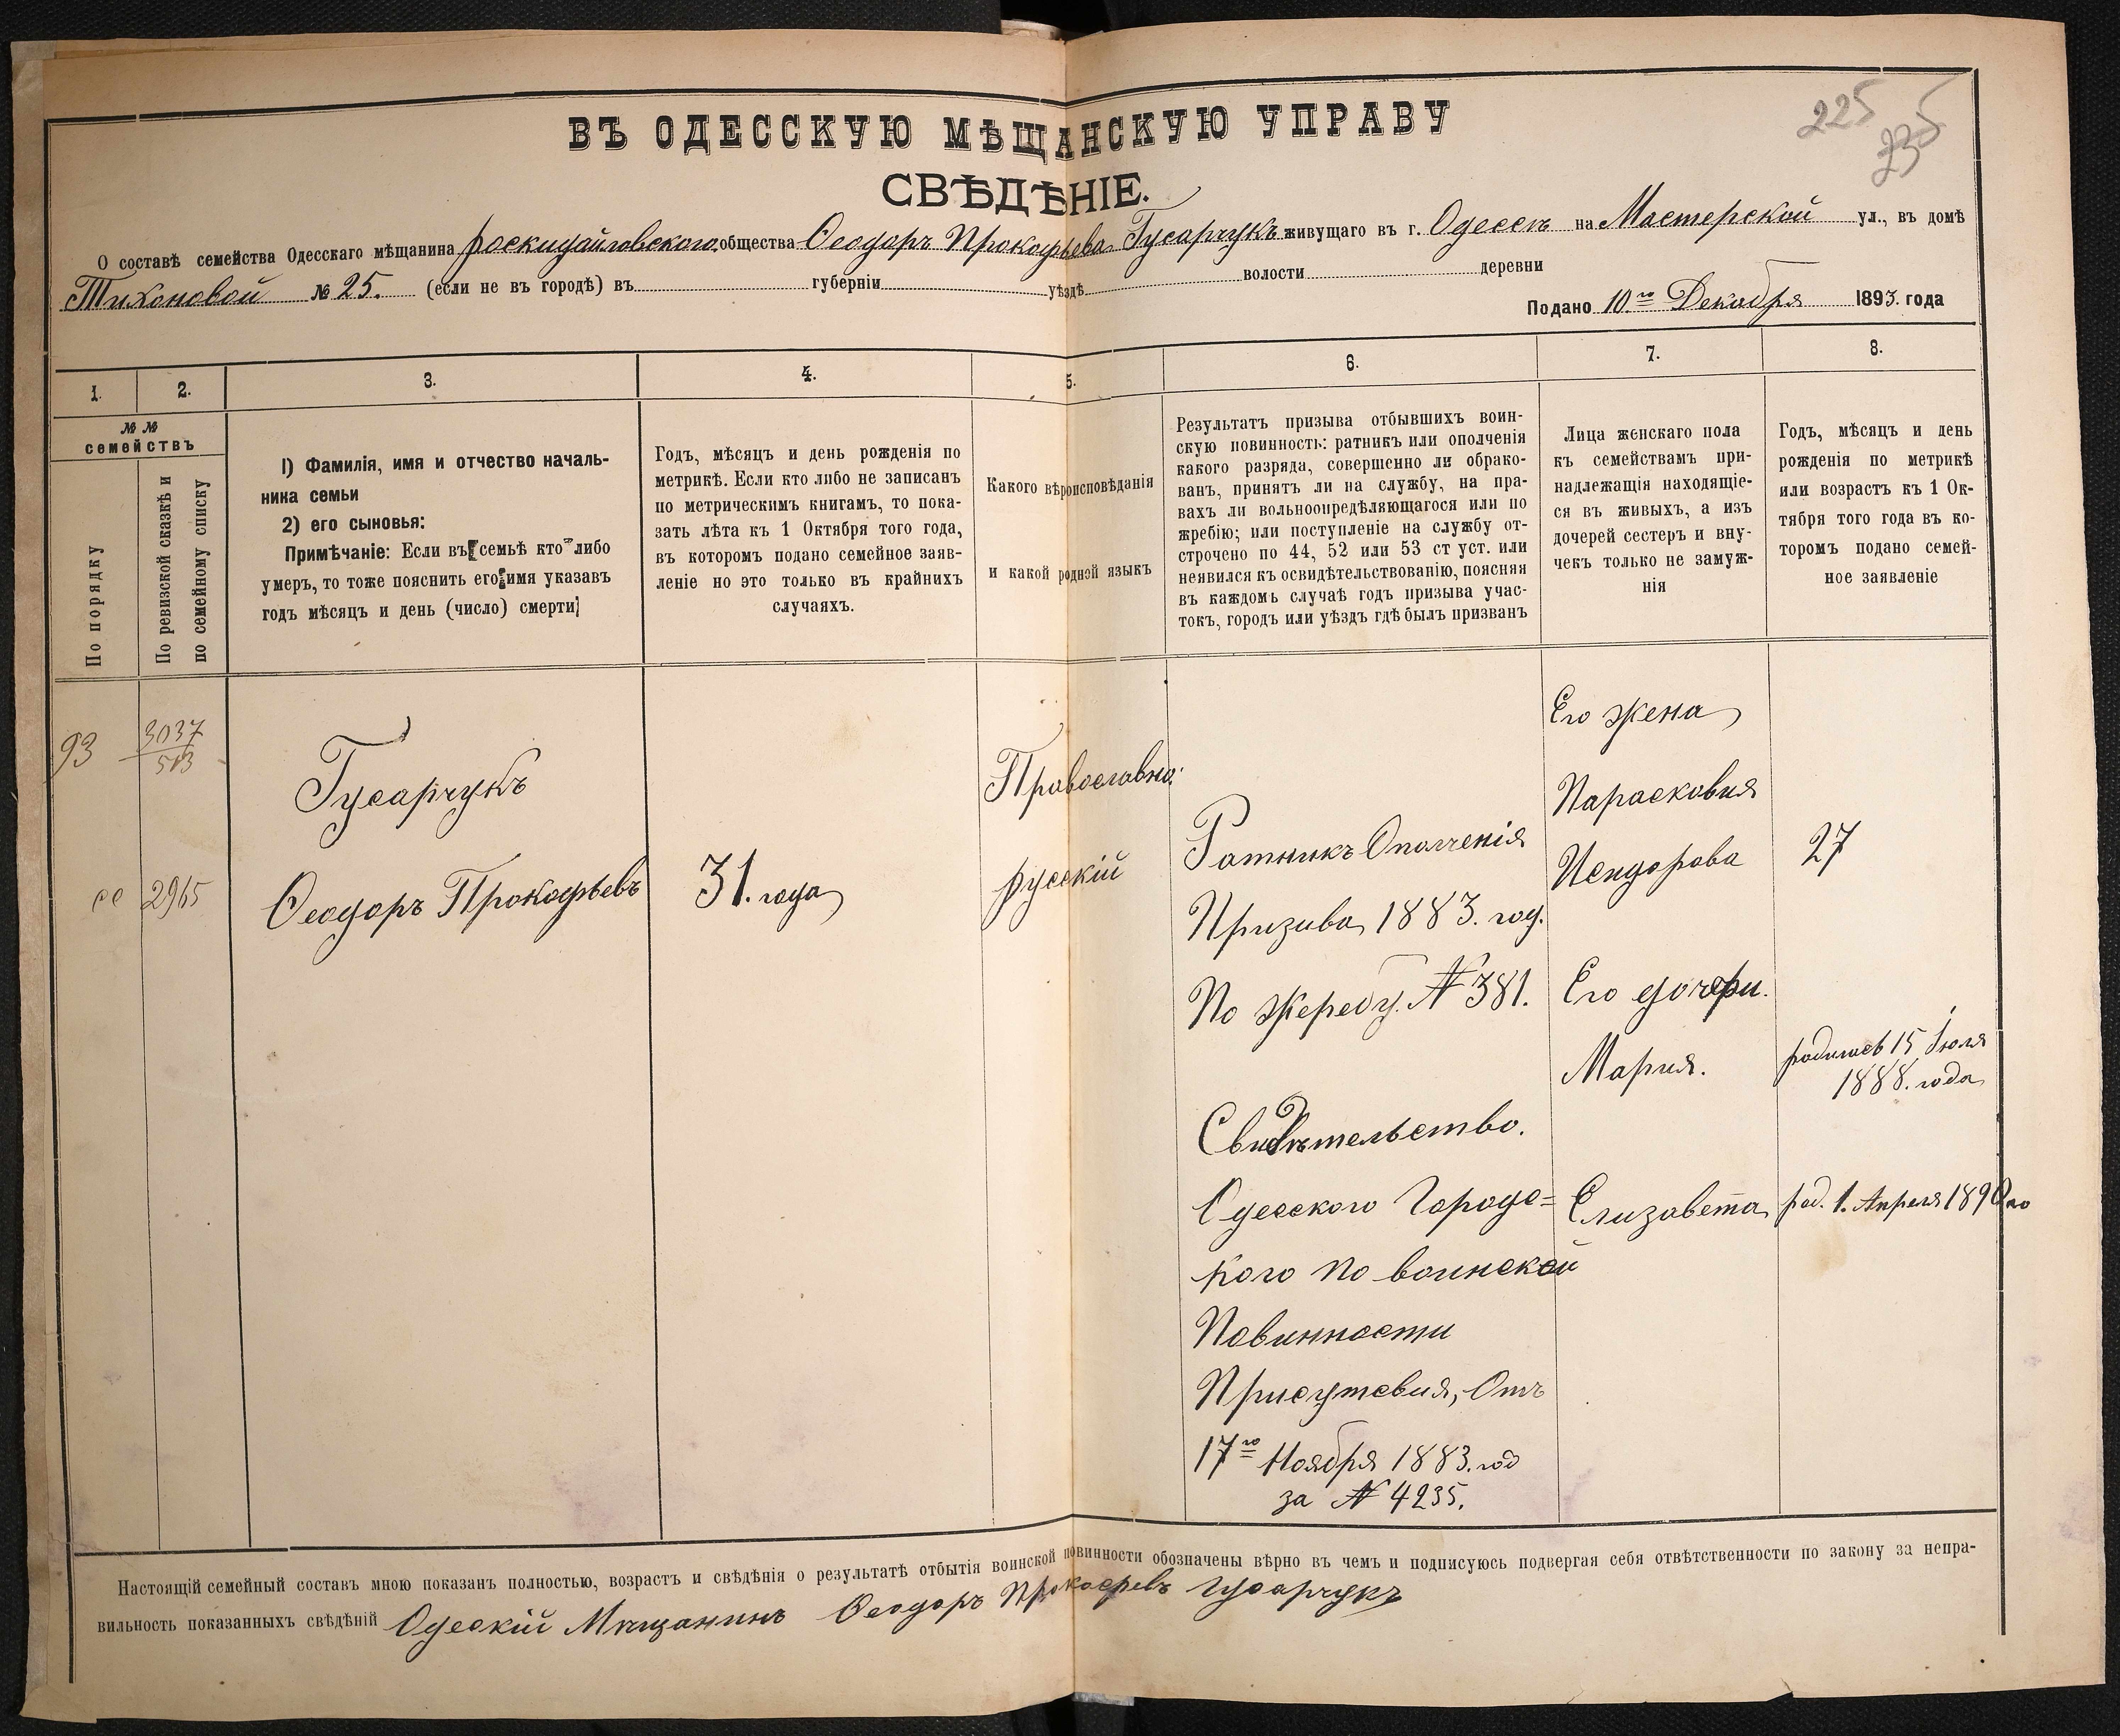 225
235
ВЪ ОДЕССКУЮ МѢЩАНСКУЮ УПРАВУ
СВѢДѢНІЕ.
О составѣ семейства Одесскаго мѣщанина роскидайловскаго общества Ѳеодоръ Прокофьева Гусарчукъ живущаго въ г. Одессѣ на Мастерской ул., въ домѣ
Тихоновой № 25. (если не въ городѣ) въ губерніи уѣздѣ волости деревни
Подано 10го Декабря 1893. года
1. 2. 3. 4. 5. 6. 7. 8.
№ №
семействъ
По порядку
По ревизской сказкѣ и
по семейному списку
1) Фамилія, имя и отчество началь-
ника семьи
2) его сыновья:
Примѣчаніе: Если въ семьѣ кто либо
умеръ, то тоже пояснить его имя указавъ
годъ мѣсяцъ и день (число) смерти;
Годъ, мѣсяцъ и день рожденія по
метрикѣ. Если кто либо не записанъ
по метрическимъ книгамъ, то пока-
зать лѣта къ 1 Октября того года,
въ которомъ подано семейное заяв-
леніе но это только въ крайнихъ
случаяхъ.
Какого вѣроисповѣданія
и какой родной языкъ
Результатъ призыва отбывшихъ воин-
скую повинность: ратникъ или ополченія
какого разряда, совершенно ли обрако-
ванъ, принятъ ли на службу, на пра-
вахъ ли вольноопредѣляющагося или по
жребію; или поступленіе на службу от-
строчено по 44, 52 или 53 ст уст. или
неявился къ освидѣтельствованію, поясняя
въ каждомъ случаѣ годъ призыва учас-
токъ, городъ или уѣздъ гдѣ былъ призванъ
Лица женскаго пола
къ семействамъ при-
надлежащія находящіе-
ся въ живыхъ, а изъ
дочерей сестеръ и вну-
чекъ только не замуж-
нія
Годъ, мѣсяцъ и день
рожденія по метрикѣ
или возрастъ къ 1 Ок-
тября того года въ ко-
торомъ подано семей-
ное заявленіе
93
3037
513
2965
Гусарчукъ
Ѳеодоръ Прокофьевъ
31. года
Православно:
русскій
Ратникъ Ополченія
Призива 1883. год.
По Жеребу. № 381.
Свидѣтельство.
Одесского Городс=
кого по воинской
Повинности
Присутсвия, Отъ
17го Ноября 1883. год
за № 4235.
Его жена
Парасковия
Исидорова
27
Его дочери.
Мария.
родилась 15 Іюля
1888. года
Елизавета
род. 1. Апреля 1890 го
Настоящій семейный составъ мною показанъ полностью, возрастъ и свѣдѣнія о результатѣ отбытія воинской повинности обозначены вѣрно въ чемъ и подписуюсь подвергая себя отвѣтственности по закону за непра-
вильность показанныхъ свѣдѣній Одескій Мѣщанинъ Ѳеодоръ Прокофевъ Гусарчукъ